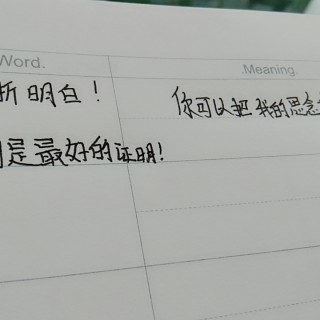 Word.
.Meaning.
明白！
你可以把我的思念
是最好的证明！